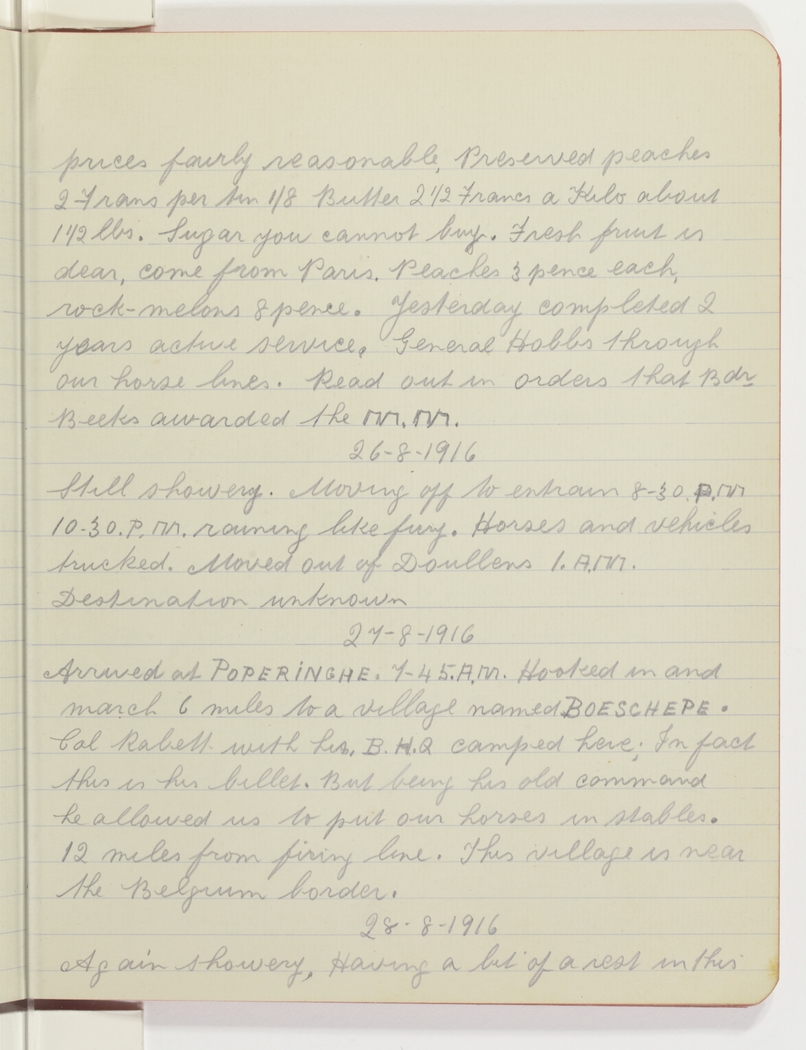 prices fairly reasonable, Preserved peaches
2 Frans per tin 1/8 Butter 2 1/2 Francs a Kilo about
1 1/2 lbs. Sugar you cannot buy. Fresh fruit is
dear, come from Paris. Peaches 3 pence each,
rock-melons 8 pence. Yesterday completed 2
years active service. General Hobbs through
our horse lines. Read out in orders that Bdr
Beeks awarded the M.M.
26-8-1916
Still showery. Moving off to entrain 8-30. P.M
10-30. P.M. raining like fury. Horses and vehicles
trucked. Moved out of Doullens 1. A.M.
Destination unknown
27-8-1916
Arrived at POPERINGHE. 7-45. A.M. Hooked in and
march 6 miles to a village named BOESCHEPE.
Col Rabett with his, B.H.Q camped here. In fact
this is his billet. But being his old command
he allowed us to put our horses in stables.
12 miles from firing line. This village is near
the Belgium border.
28-8-1916
Again showery, Having a bit of a rest in this